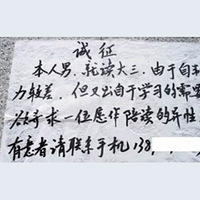 诚征
本人男.就读大三.由于自
力较差.但又出自于学习的需要
故寻求一位愿作陪读的异性
有意者请联系手机138,